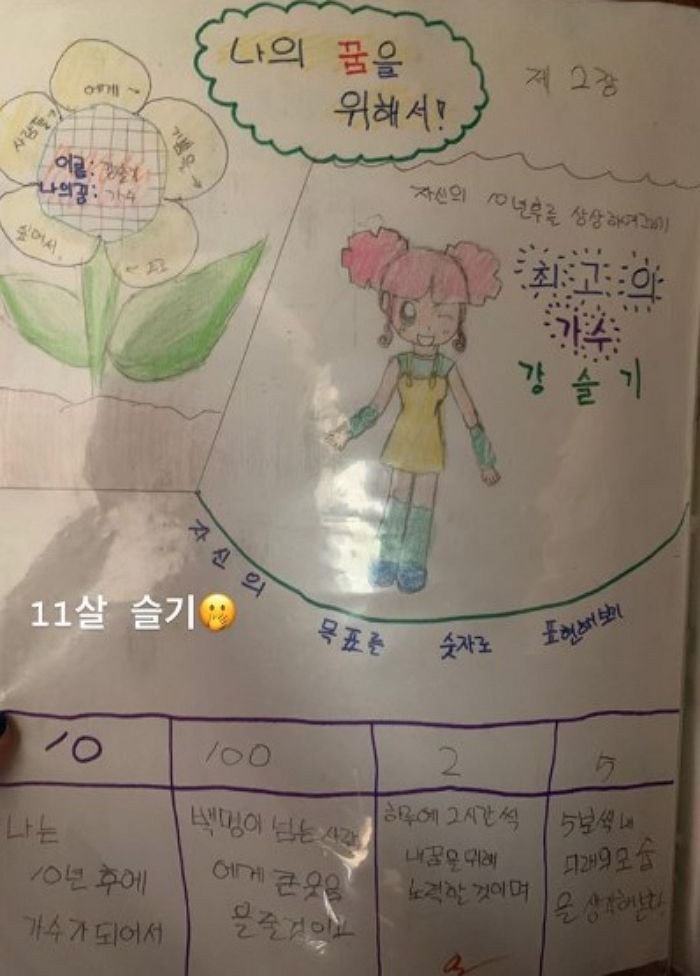 나의 꿈을
위해서!
제 2장
에게→
사람들
기쁨을→
이름: 강슬기
나의꿈: 가수
싶어서.
←주고
자신의 10년후를 상상하여그리기
최고의
가수
강슬기
11살 슬기🤭
자신의 목표를 숫자로 표현해보기
10
100
2
5
나는
10년 후에
가수가 되어서
백명이 넘는 사람
에게 큰 웃음
을 줄것이고
하루에 2시간 씩
내꿈을 위해
노력할 것이며
5분씩 내
미래의 모습
을 생각해본다.